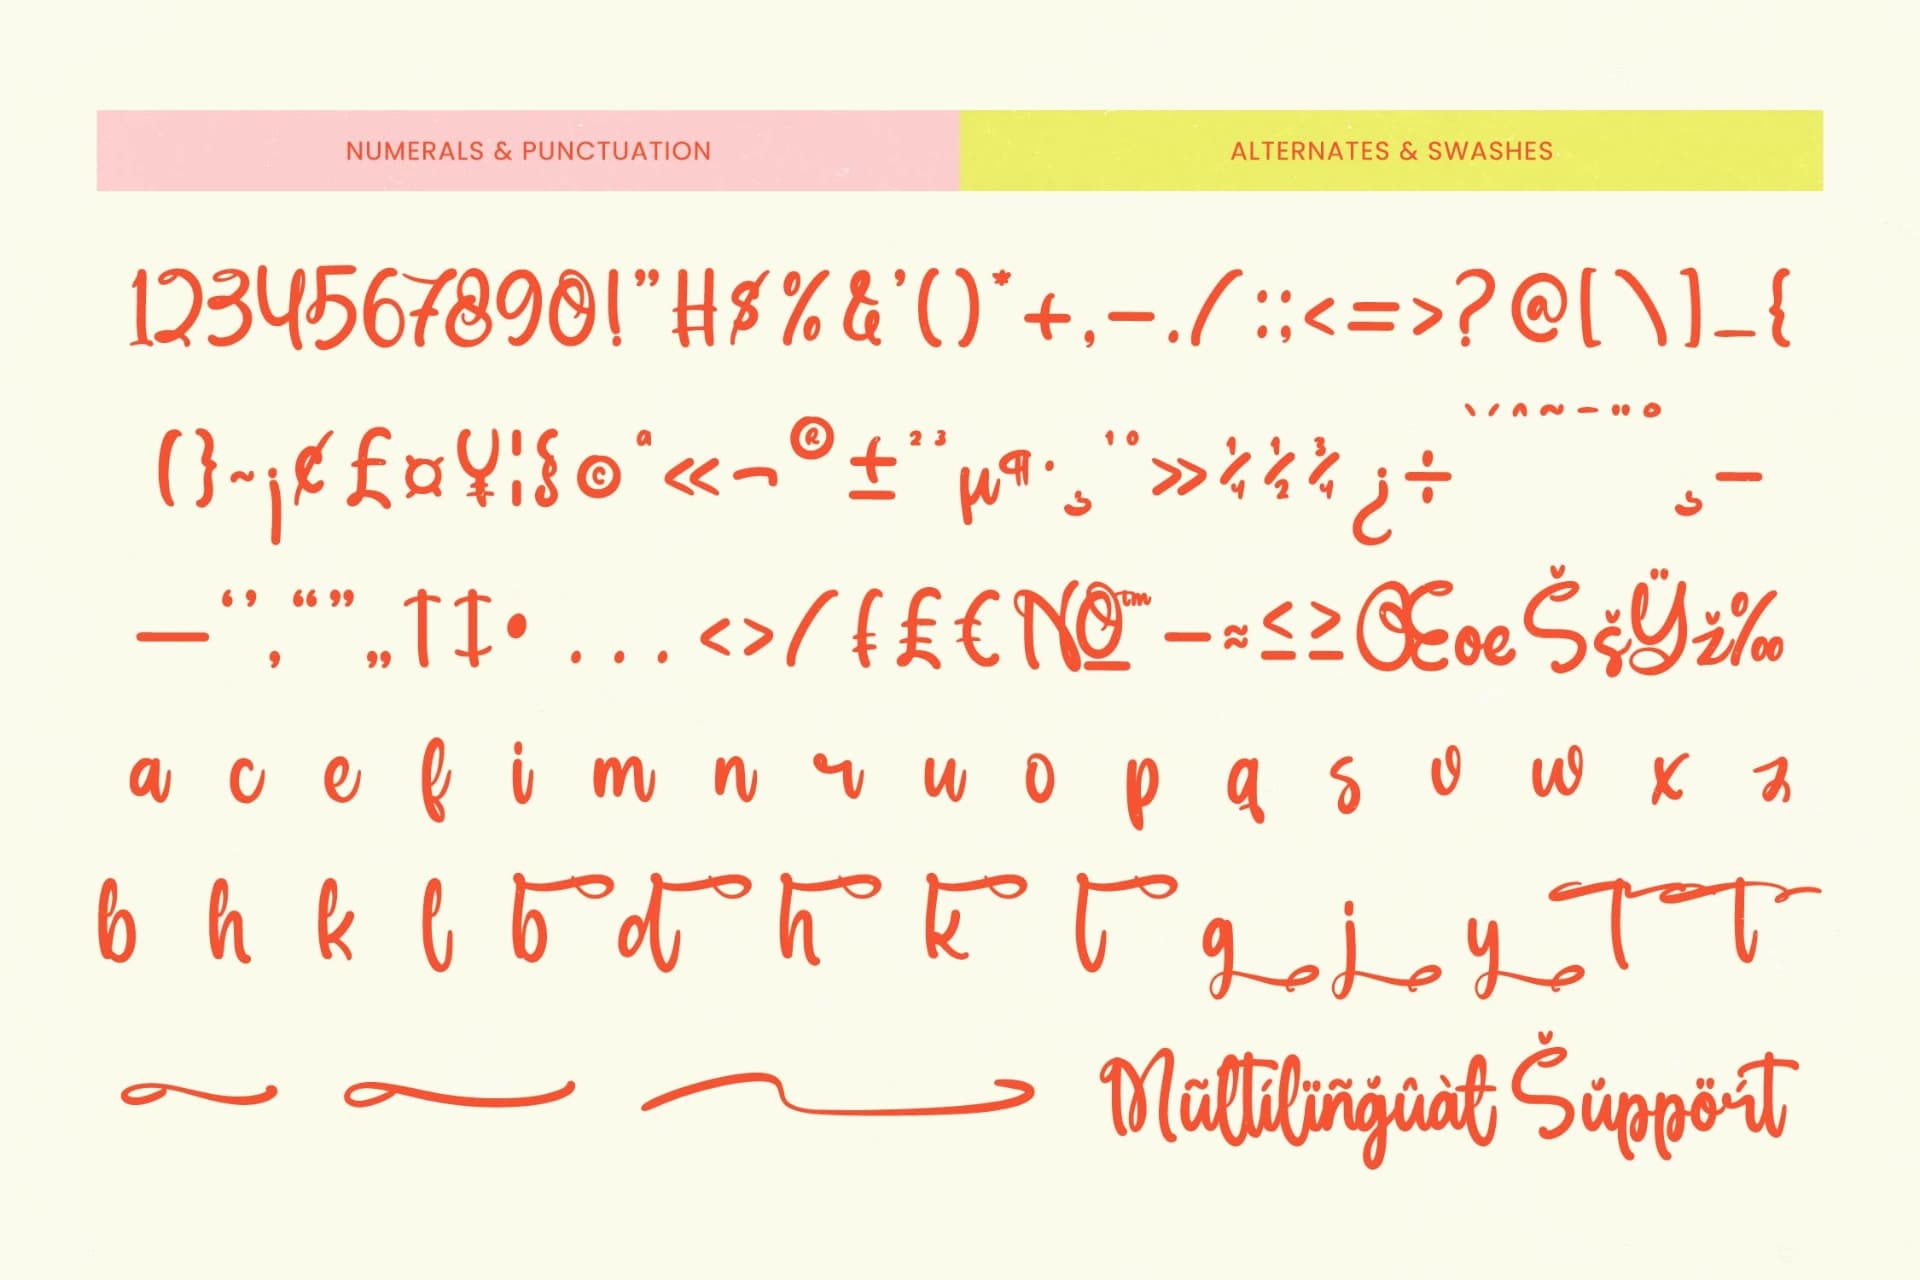 NUMERALS & PUNCTUATION
ALTERNATES & SWASHES
1234567890!"#$%&'()*+,-./:;<=>?@[\]_{
(}~¡¢£¤¥¦§©ª«¬®±²³µ¶·¸¹º»¼½¾¿÷`´^~¯¨°¸–
—‘’‚“”„†‡•...‹›⁄ƒ₤€№™−≈≤≥ŒœŠšŸž‰
a c e f i m n r u o p q s v w x z
b h k l b d h k l g j y T t
Mũltíl̃ïñğûàt Šúppört